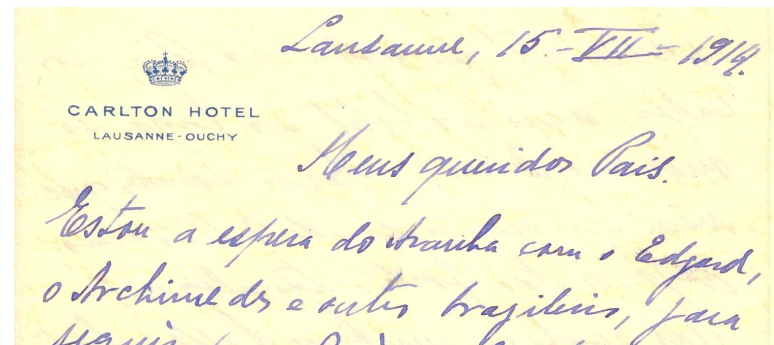 Lausanne, 15-VII-1914.
CARLTON HOTEL
LAUSANNE-OUCHY
Meus queridos Pais.
Estou a espera do Aranha com o Edgard,
o Archimedes e outros brazileiros, para
seguir